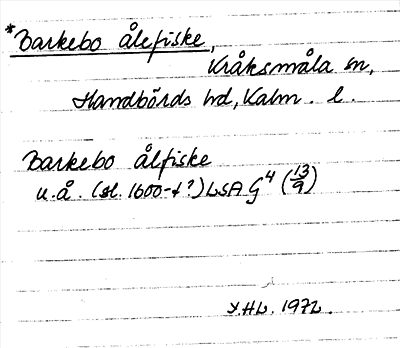 *Barkebo ålefiske,
Kråksmåla sn,
Handbörds hd, Kalm. l.
Barkebo ålfiske
u.å. (sl. 1600-t?) LSA G4 (13/9)
Y.HL. 1972.